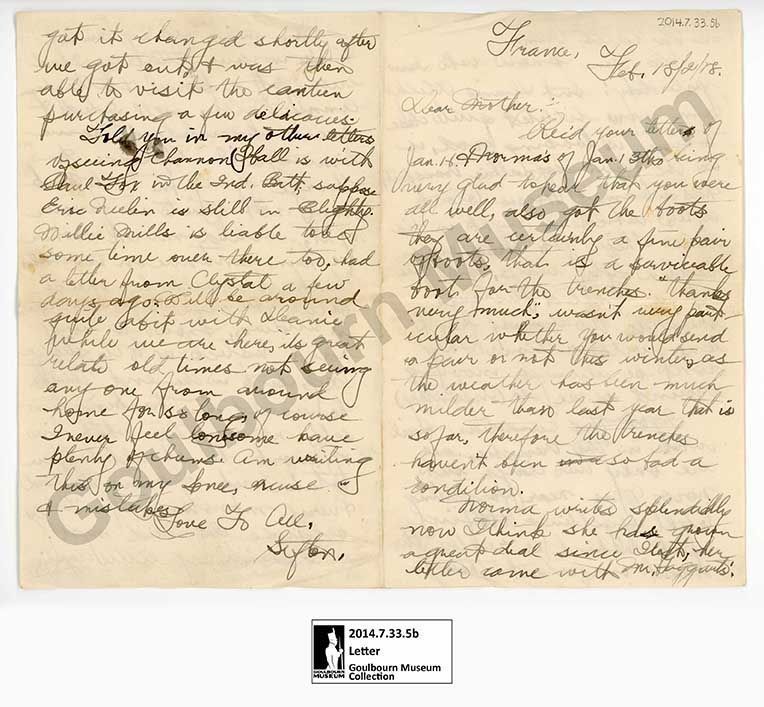 2014.7.33.5b
France,
Feb. 18/2/18.
Dear Mother:-
Rec'd your letters of
Jan. 14 Norma's of Jan. 13th being
very glad to hear that you were
all well, also got the boots
they are certainly a fine pair
of boots, that is a serviceable
boot for the trenches. "thanks
very much", wasn't very part-
icular whether you would send
a pair or not this winter, as
the weather has been much
milder than last year that is
so far, therefore the trenches
haven't been so bad a
condition.
Norma writes splendidly
now I think she has grown
a great deal since I left, her
letter came with
got it changed shortly after
we got out, I was then
able to visit the canteen
purchasing a few delicacies.
Told you in my other letters
of seeing Channon Hall is with
in the 2nd. Batt, suppose
Eric is still in Blighty.
Willie Mills is liable to be
some time over there too, had
a letter from Crystal a few
days ago. Will be around
quite a bit with
while we are here, it's great
relate old times not seeing
any one from around
home for so long, of course
I never feel lonesome have
plenty of chums. Am writing
this on my knee,
& mistakes.
Love To All,
Sifton.
Goulbourn Museum
2014.7.33.5b
Letter
Goulbourn Museum
Collection
GOULBOURN
MUSEUM